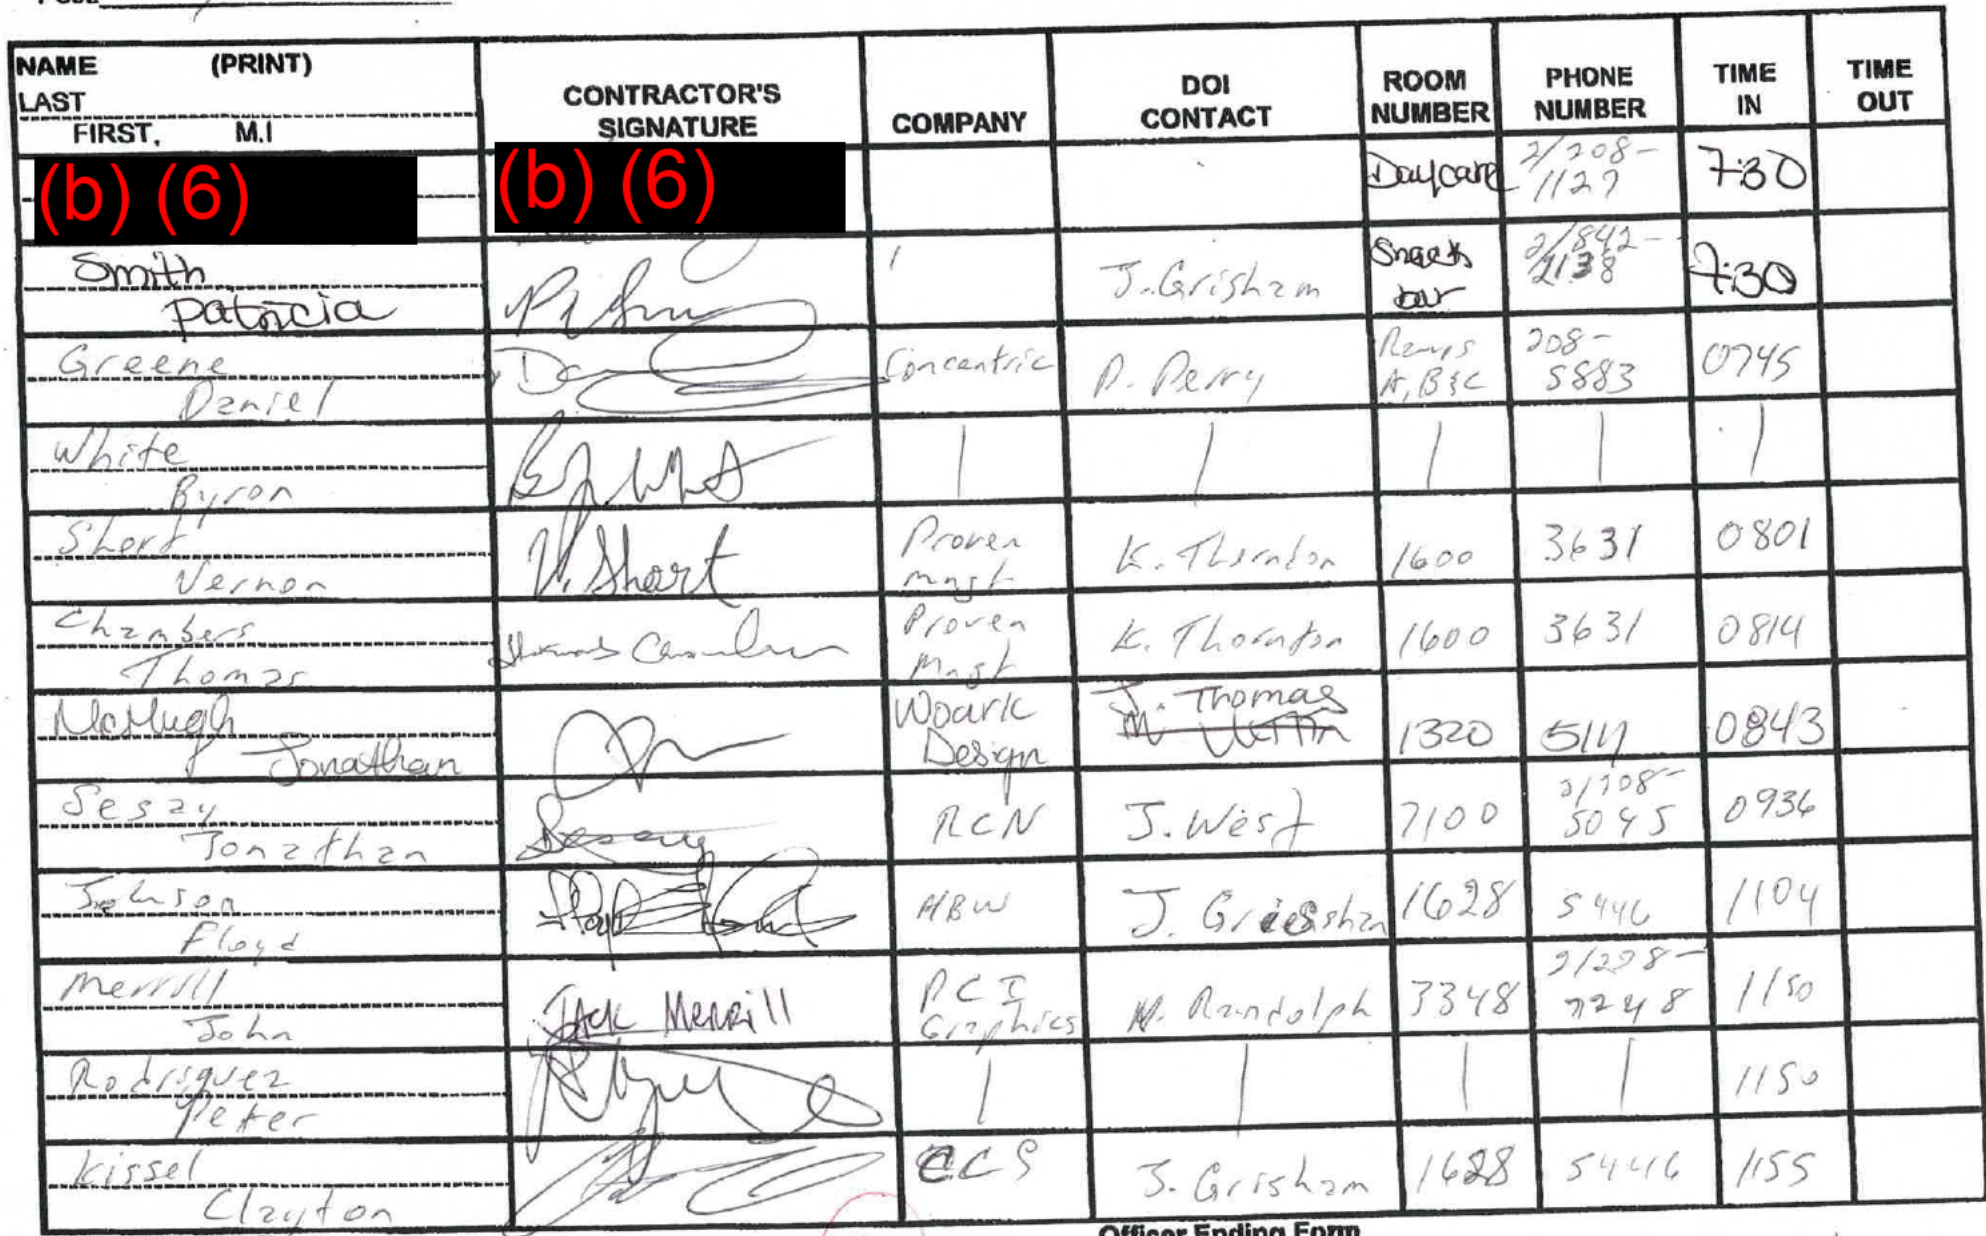 NAME (PRINT)
LAST
FIRST, M.I
CONTRACTOR'S SIGNATURE
COMPANY
DOI CONTACT
ROOM NUMBER
PHONE NUMBER
TIME IN
TIME OUT
(b) (6) (b) (6) Daycare 2/208-1127 7:30
Smith Patricia J. Grisham Snack bar 2/842-2138 7:30
Greene Daniel Concentric P. Perry A, B & C 208-5883 0745
White Byron | | | | |
Short Vernon V. Short Proven Mngt K. Thornton 1600 3631 0801
Chambers Thomas Proven Mngt K. Thornton 1600 3631 0814
McHugh Jonathan Woark Design J. Thomas 1320 5111 0843
Sesay Jonathan Sesay RCN J. West 7100 2/208-5045 0936
Johnson Floyd ABW J. Griessham 1628 5446 1104
Merrill John JACK MERRill PCI Graphics M. Randolph 3348 7248 1150
Rodriguez Peter | | | | 1150
Kissel Clayton CCS J. Grisham 1628 5446 1155
Officer Ending Form